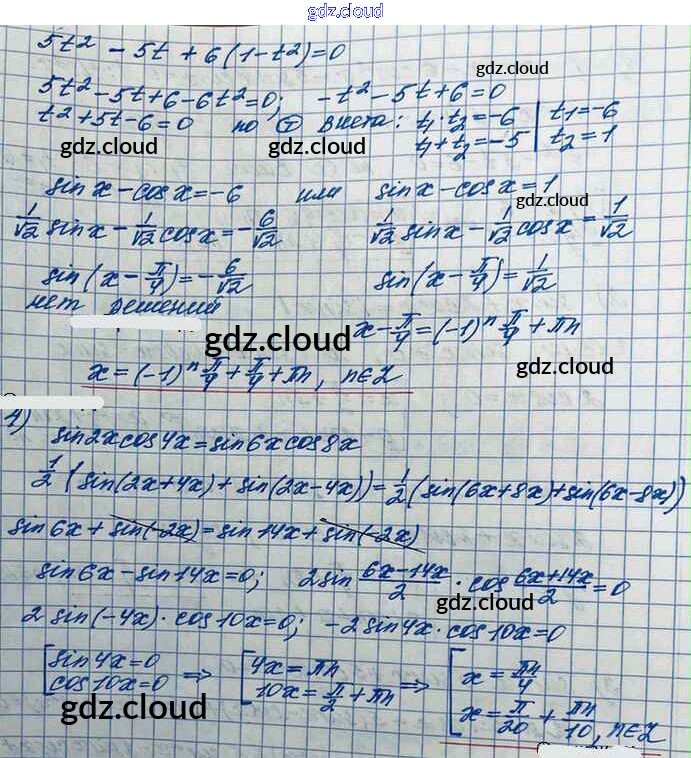 gdz.cloud
5t² - 5t + 6(1-t²)=0
gdz.cloud
5t²-5t+6-6t²=0; -t²-5t+6=0
t²+5t-6=0 по т Виета: t₁·t₂=-6 | t₁=-6
t₁+t₂=-5 | t₂=1
gdz.cloud gdz.cloud
sin x - cos x = -6 или sin x - cos x = 1
gdz.cloud
1/√2 sin x - 1/√2 cos x = -6/√2 1/√2 sin x - 1/√2 cos x = 1/√2
sin(x - π/4) = -6/√2 sin(x - π/4) = 1/√2
нет решений
gdz.cloud
x - π/4 = (-1)ⁿ π/4 + πn
gdz.cloud
x = (-1)ⁿ π/4 + π/4 + πn, n∈Z
4)
sin2x cos4x = sin6x cos8x
1/2 (sin(2x+4x) + sin(2x-4x)) = 1/2 (sin(6x+8x) + sin(6x-8x))
sin6x + sin(-2x) = sin14x + sin(-2x)
gdz.cloud
sin6x - sin14x = 0; 2sin (6x-14x)/2 · cos (6x+14x)/2 = 0
gdz.cloud
2 sin(-4x) · cos10x = 0; -2 sin4x · cos10x = 0
[sin4x=0 ⇒ [4x = πn ⇒ [x = πn/4
cos10x=0 10x = π/2 + πn x = π/20 + πn/10, n∈Z
gdz.cloud gdz.cloud